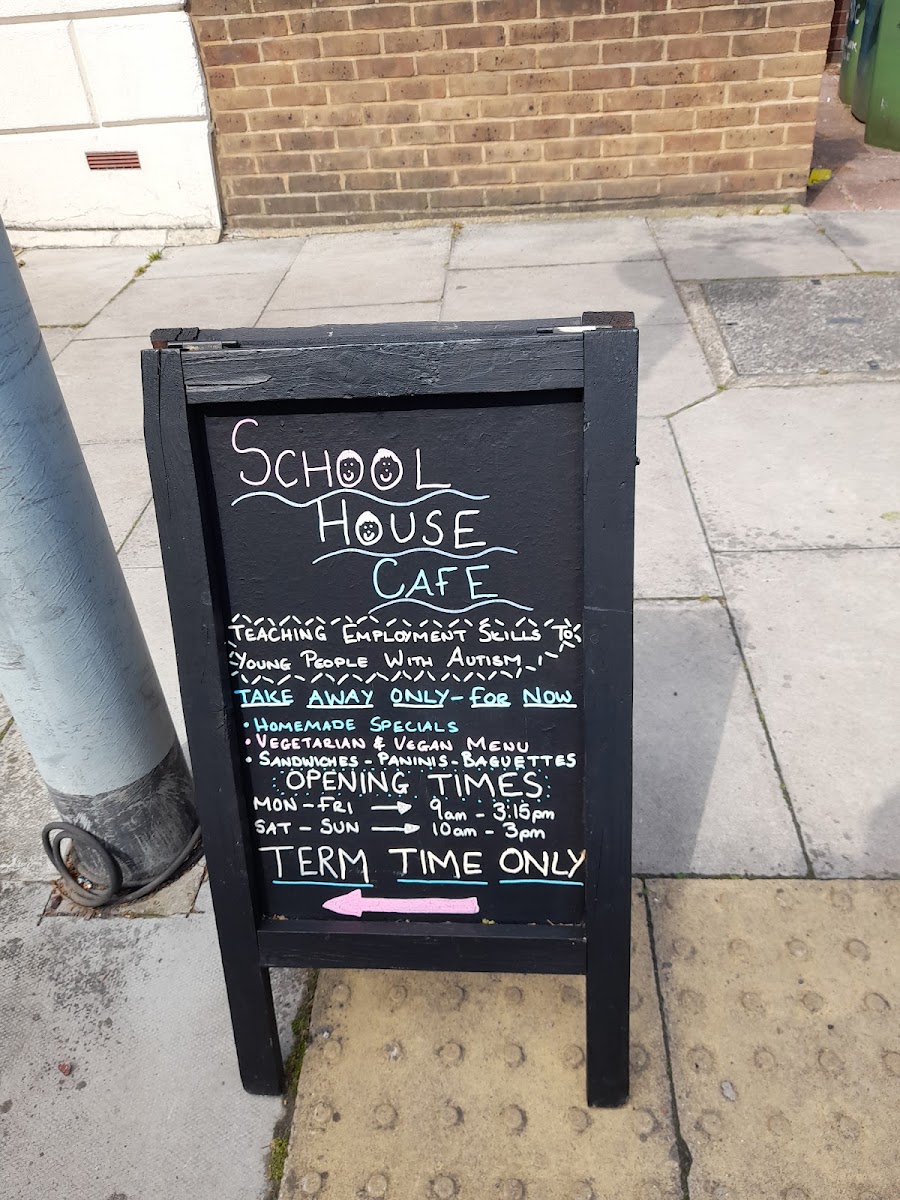 SCHOOL
HOUSE
CAFE
TEACHING EMPLOYMENT SKILLS TO
YOUNG PEOPLE WITH AUTISM
TAKE AWAY ONLY - FOR NOW
• HOMEMADE SPECIALS
• VEGETARIAN & VEGAN MENU
• SANDWICHES - PANINIS - BAGUETTES
OPENING TIMES
MON - FRI → 9am - 3:15pm
SAT - SUN → 10am - 3pm
TERM TIME ONLY